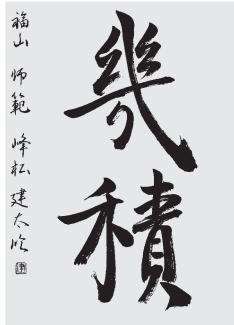 幾積
福山 師範 峰松 建太